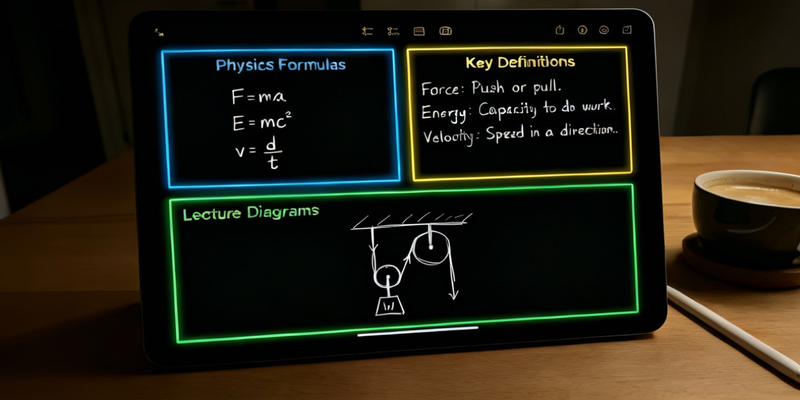 Physics Formulas
F = ma
E = mc²
v = d/t
Key Definitions
Force: Push or pull.
Energy: Capacity to do work.
Velocity: Speed in a direction..
Lecture Diagrams
W